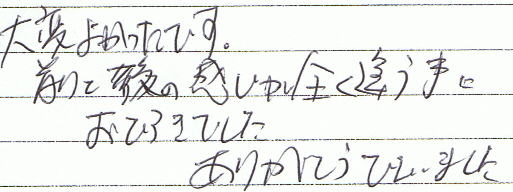 大変よかったです。
前と後の感じが全く違う事に
おどろきでした
ありがとうございました